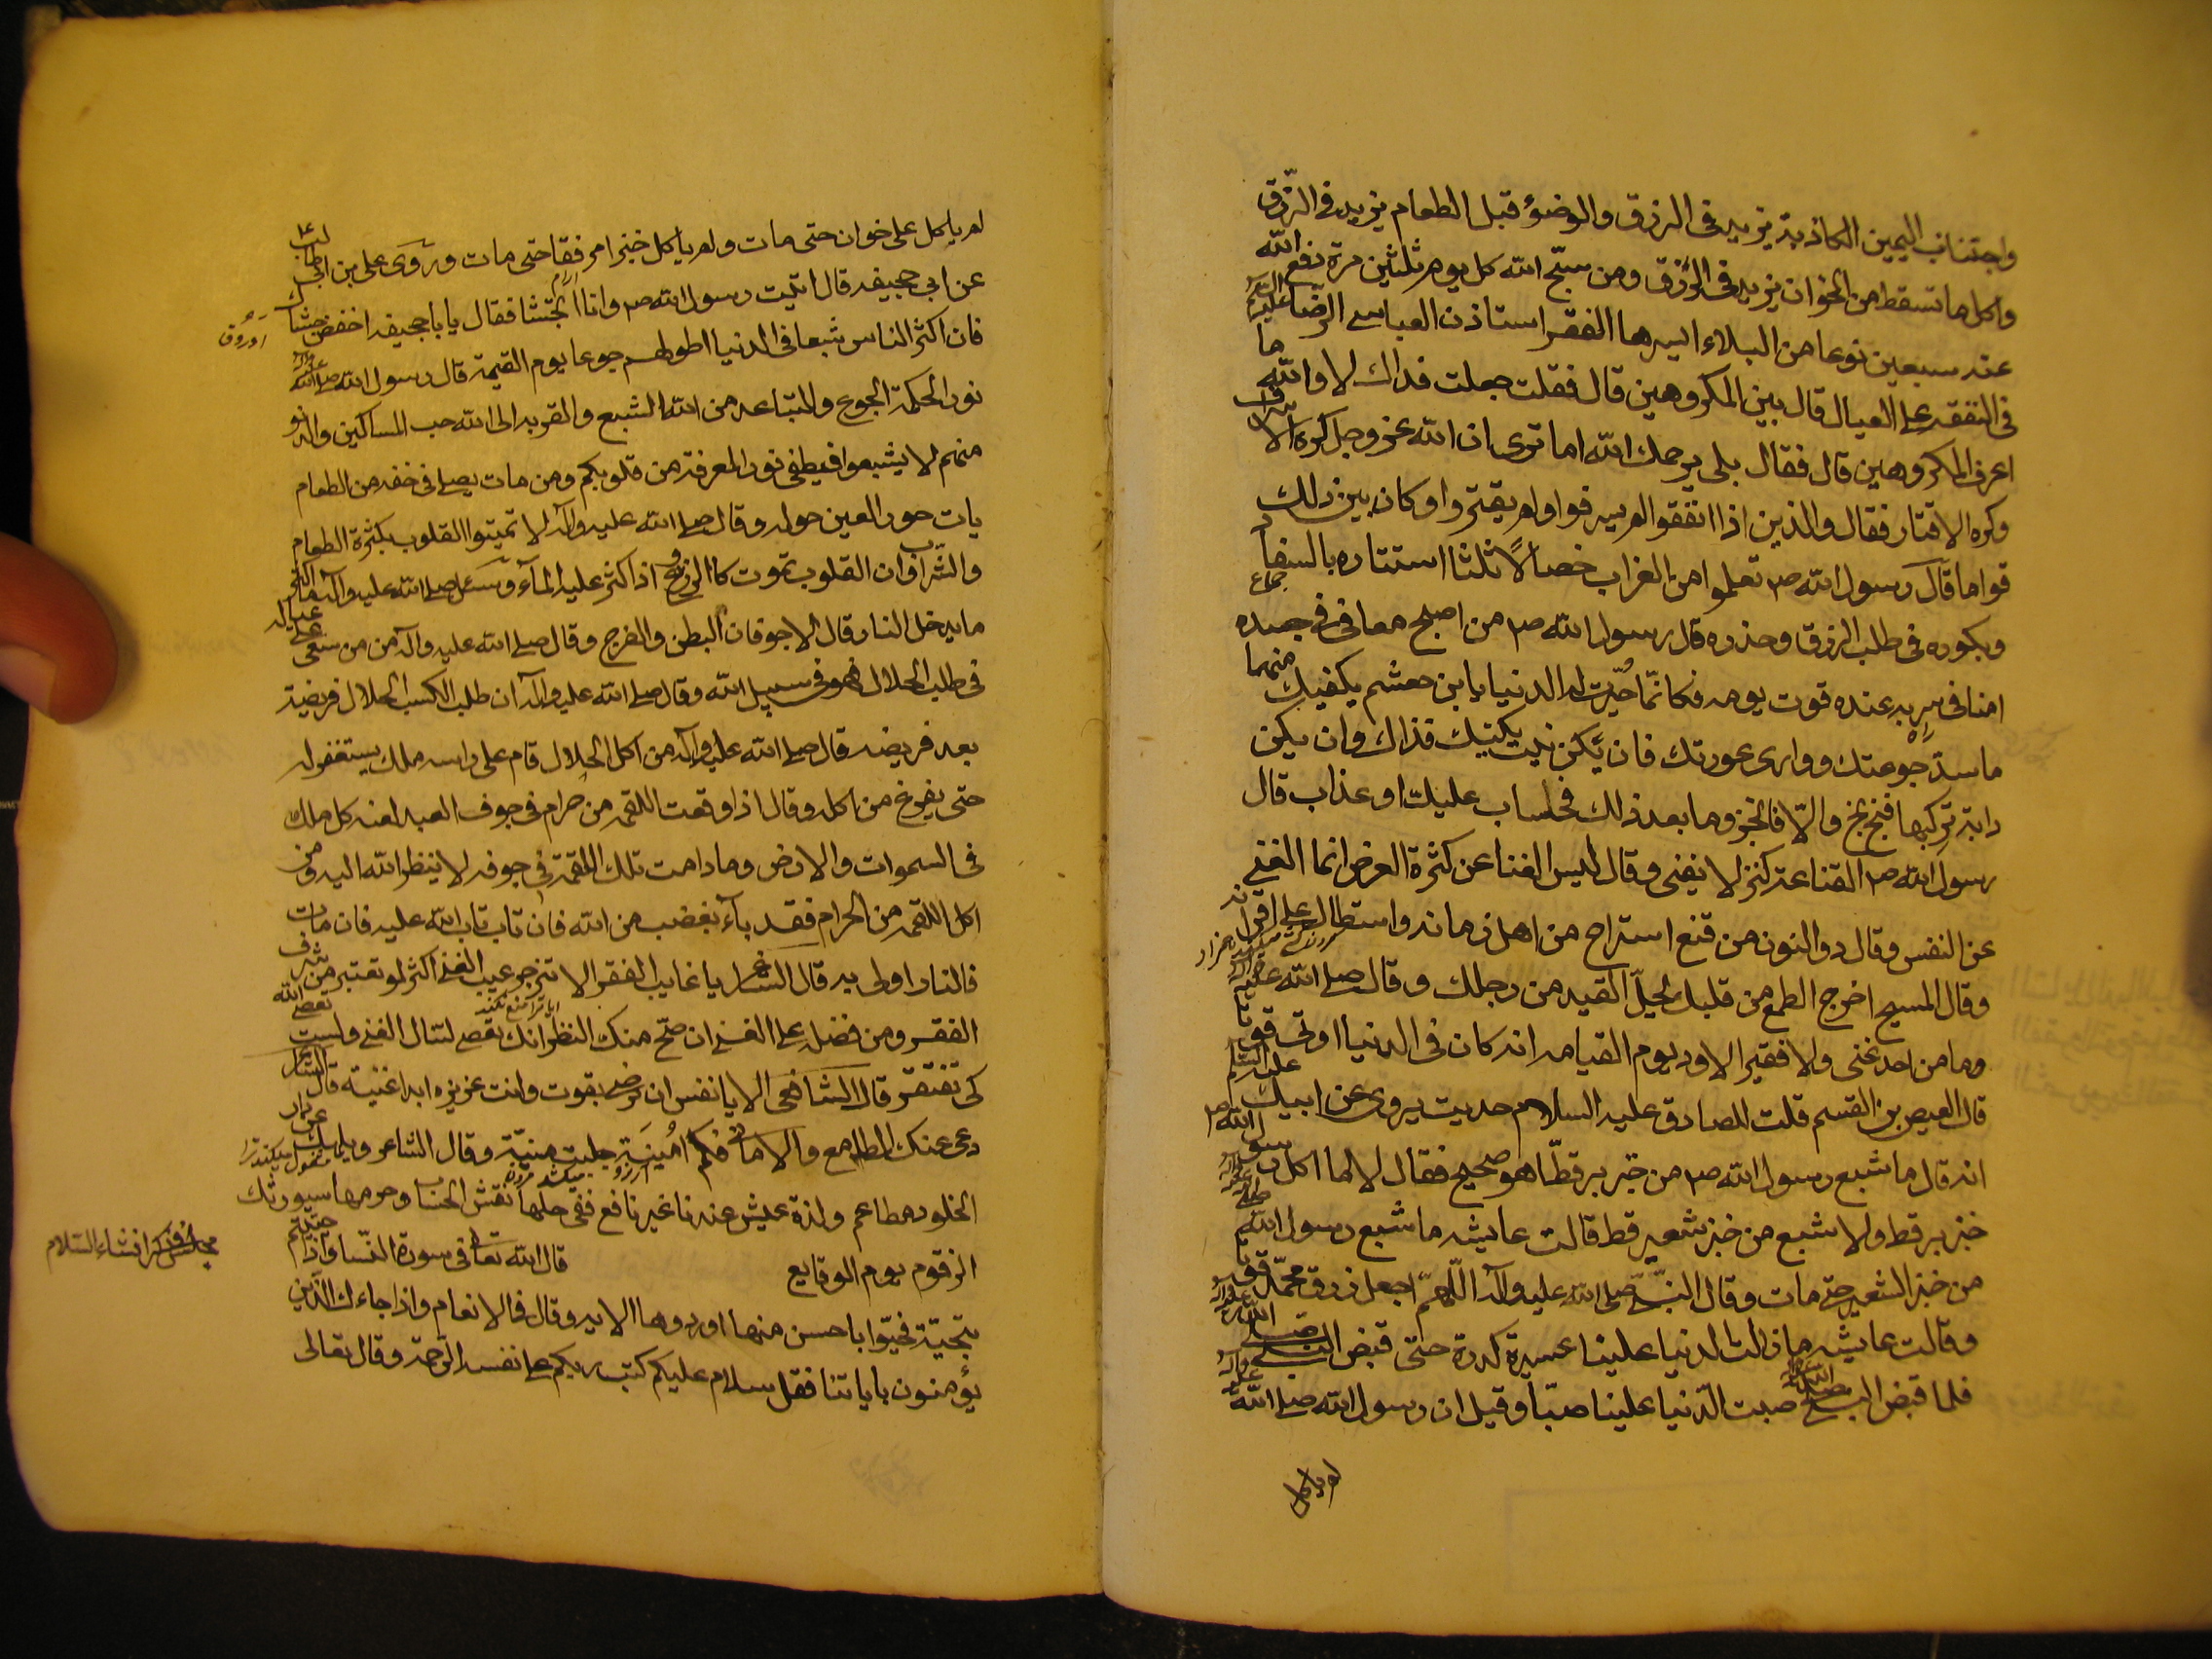 واجتناب اليمين الكاذبة يزيد في الرزق والوضوء قبل الطعام يزيد في الرّزق
واكل ما تسقط من الخوان يزيد في الرّزق ومن سبّح الله كل يوم ثلثين مرة دفع الله
عنه سبعين نوعا من البلاء ايسرها الفقر استاذن العباسي الرضا عليه السلام
في النفقه على العيال قال بين المكروهين قال فقلت جعلت فداك لا والله ما
اعرف المكروهين قال فقال بلى يرحمك الله اما ترى ان الله عز وجل كره الاسراف
وكره الاقتار فقال والذين اذا انفقوا لم يسرفوا ولم يقتروا وكان بين ذلك
قواما قال رسول الله ص تعلموا من الغراب خصالاً ثلثا استتاره بالسفاد
جماع
وبكوره في طلب الرزق وحذره قال رسول الله ص من اصبح معافى في جسده
امنا في سربه عنده قوت يومه فكانمّا حيّزت له الدنيا يا ابن جعشم يكفيك منهما
ما سدّ جوعتك ووارى عورتك فان يكن بيت يكنيك فذاك وان يكن
دابة تركبها فبخ بخ والّا فالخبز وما بعد ذلك فحساب عليك او عذاب قال
رسول الله ص القناعة كنز لا يفنى وقال ليس الغنا عن كثرة العرض انما الغنى
عن النفس وقال ذو النون من قنع استراح من اهل زمانه واستطال على اقرانه
وقال المسيح اخرج الطمع من قلبك يحلّ القيد من رجلك وقال صلى الله عليه وآله
وما من احد غنى ولا فقير الا ود يوم القيامه انه كان في الدنيا اوتى قوتا
قال العيص بن القسم قلت للصادق عليه السلام حديث يروى عن ابيك عليه السلام
انه قال ما شبع رسول الله ص من خبز بر قطّ اهو صحيح فقال لا ما اكل رسول الله ص
خبز بر قط ولا شبع من خبز شعير قط قالت عايشه ما شبع رسول الله صلى
من خبز الشعير حتى مات وقال النبّي صلى الله عليه وآله اللّهمّ اجعل رزق محمّد قوتا
وقالت عايشه ما زالت الدنيا علينا عسيرة كدرة حتى قبض النبي صلى الله عليه وآله
فلما قبض النبي صلى الله صبت الدّنيا علينا صبّا وقيل ان رسول الله صلى الله عليه وآله
لم ياكل
لم ياكل على خوان حتى مات ولم ياكل خبزا مرققا حتى مات وروى على بن ابي طالب ع
عن ابي جحيفه قال اتيت رسول الله ص وانا اتجشا فقال يا با جحيفه اخفض جشاك
اوروق
فان اكثر الناس شبعا في الدنيا اطولهم جوعا يوم القيمة قال رسول الله صلى الله عليه وآله
نور الحكمة الجوع والتباعد من الله الشبع والقربه الى الله حب المساكين والدنو
منهم لا يشبعوا فيطفى نور المعرفة من قلوبكم ومن مات يصلى في خفه من الطعام
بات حور العين حوله وقال صلى الله عليه وآله لا تميتوا القلوب بكثرة الطعام
والشّراب فان القلوب تموت كالزرع اذا كثر عليه المآء وسئل صلى الله عليه وآله ما اكثر
ما يدخل النار قال الاجوفان البطن والفرج وقال صلى الله عليه وآله من من سعى على عياله
في طلب الحلال فهو في سبيل الله وقال صلى الله عليه وآله ان طلب الكسب الحلال فريضة
بعد فريضه قال صلى الله عليه وآله من اكل الحلال قام على راسه ملك يستغفر له
حتى يفرغ من اكله وقال اذا وقعت اللقمه من حرام في جوف العبد لعنه كل ملك
في السموات والارض وما دامت تلك اللقمة في جوفه لا ينظر الله اليه ومن
اكل اللقمه من الحرام فقد بآء بغضب من الله فان تاب تاب الله عليه فان مات
فالنار اولى به قال الشاعر يا عايب الفقر الا تنزجر عيب الغنى اكثر لو تعتبر من شرف
الفقر ومن فضله على الغنى ان صّح منك النظر انك تعصى لتنال الغنى ولست تعصى الله
كى تفتقر قال الشافعى الا يا نفس ان ترضى بقوت وانت عزيزه ابدا غنيه قال الشاعر
دعى عنك المطامع والاماني فكم امُنِيَةٍ جلبت منيّة وقال الشاعر
الخلود مطاعم ولذة عيش عندنا غير نافع ففى حلها نقش الحساب وحرمها سيورثك
الزقوم يوم الوقايع
قال الله تعالى في سورة النّسا واذا حييتم
بتحيّة فحيّوا باحسن منها او ردوها الايه وقال في الانعام واذا جاءك الّذين
يؤمنون باياتنا فقل سلام عليكم كتب ربكم على نفسه الرّحمة وقال تعالى